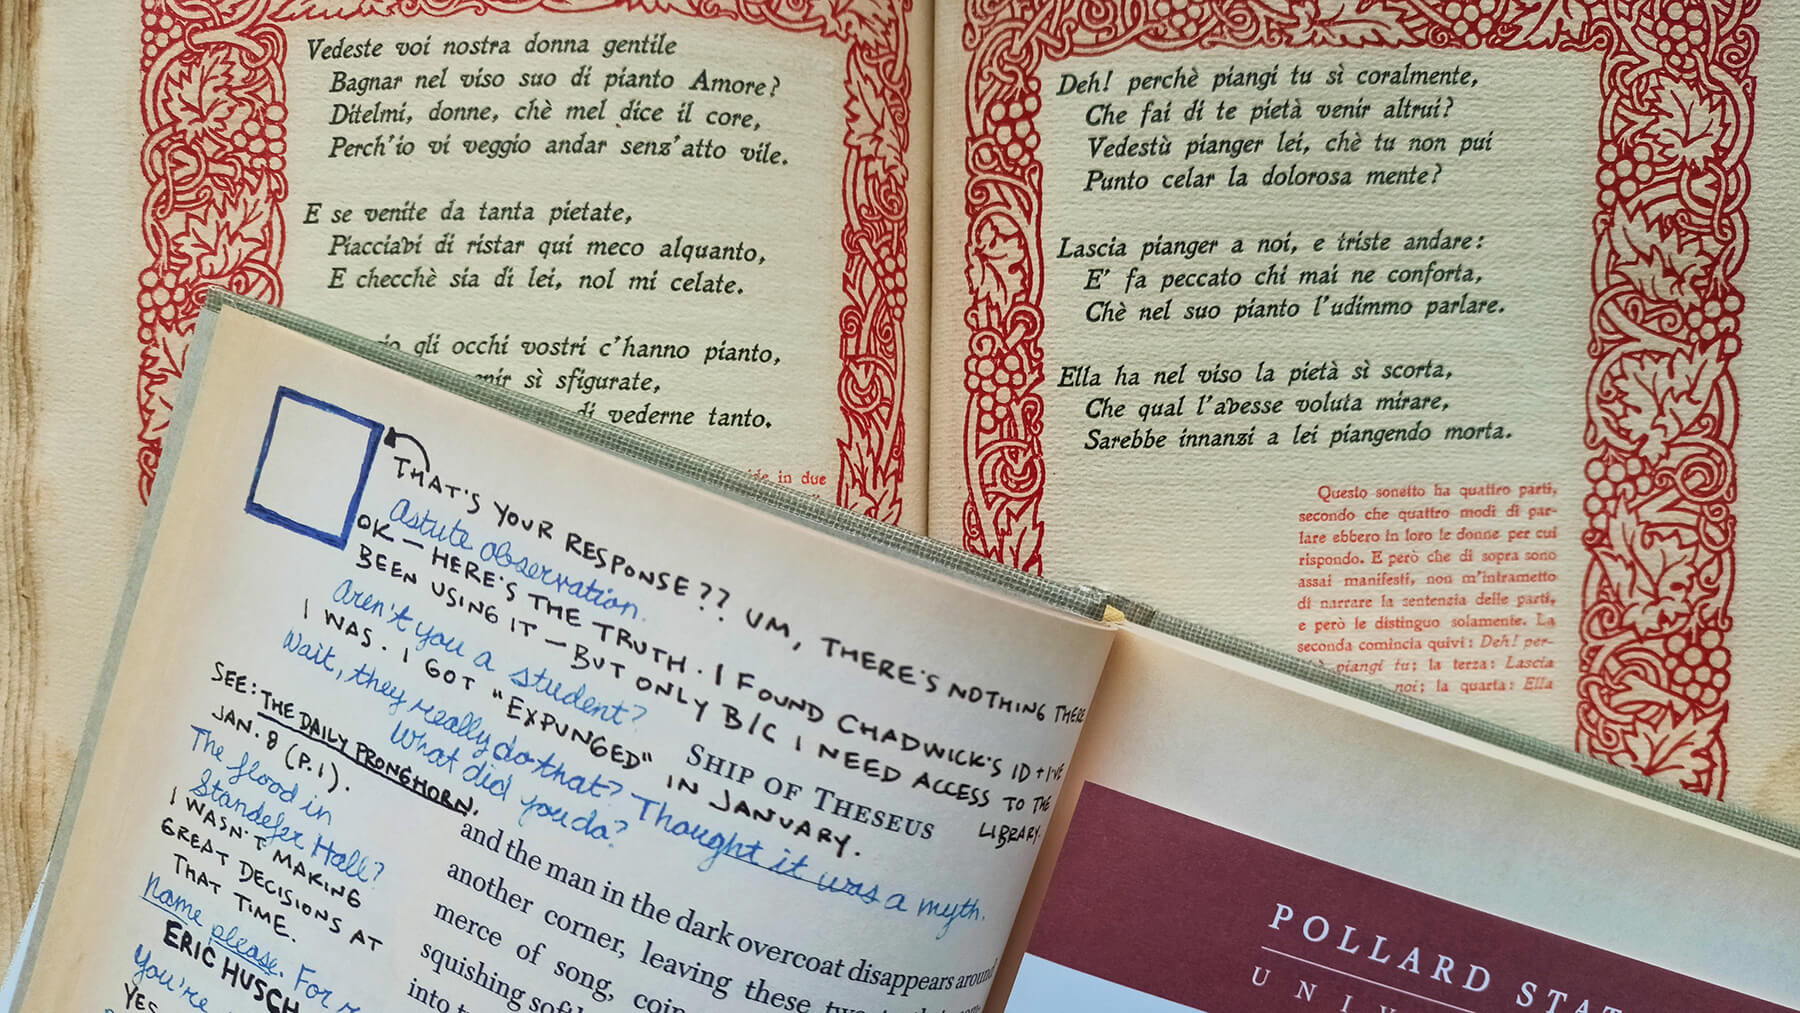 Vedeste voi nostra donna gentile
Bagnar nel viso suo di pianto Amore?
Ditelmi, donne, chè mel dice il core,
Perch'io vi veggio andar senz'atto vile.
E se venite da tanta pietate,
Piacciavi di ristar qui meco alquanto,
E checchè sia di lei, nol mi celate.
gli occhi vostri c'hanno pianto,
sì sfigurate,
di vederne tanto.
in due
Deh! perchè piangi tu sì coralmente,
Che fai di te pietà venir altrui?
Vedestù pianger lei, chè tu non pui
Punto celar la dolorosa mente?
Lascia pianger a noi, e triste andare:
E' fa peccato chi mai ne conforta,
Chè nel suo pianto l'udimmo parlare.
Ella ha nel viso la pietà sì scorta,
Che qual l'avesse voluta mirare,
Sarebbe innanzi a lei piangendo morta.
Questo sonetto ha quattro parti,
secondo che quattro modi di par-
lare ebbero in loro le donne per cui
rispondo. E però che di sopra sono
assai manifesti, non m'intrametto
di narrare la sentenzia delle parti,
e però le distinguo solamente. La
seconda comincia quivi: Deh! per-
piangi tu; la terza: Lascia
noi; la quarta: Ella
THAT'S YOUR RESPONSE?? UM, THERE'S NOTHING THERE
Astute observation.
OK — HERE'S THE TRUTH. I FOUND CHADWICK'S ID + I'VE
BEEN USING IT — BUT ONLY B/C I NEED ACCESS TO THE
LIBRARY.
Aren't you a student?
I WAS. I GOT "EXPUNGED" IN JANUARY.
Wait, they really do that? Thought it was a myth.
What did you do?
SEE: THE DAILY PRONGHORN,
JAN. 8 (P.1).
The flood in
Standefer Hall?
I WASN'T MAKING
GREAT DECISIONS AT
THAT TIME.
Name please. For
ERIC HUSCH
you're
YES
SHIP OF THESEUS
and the man in the dark overcoat disappears around
another corner, leaving these two
merce of song, coin
squishing softl
into
POLLARD STAT
UNIV